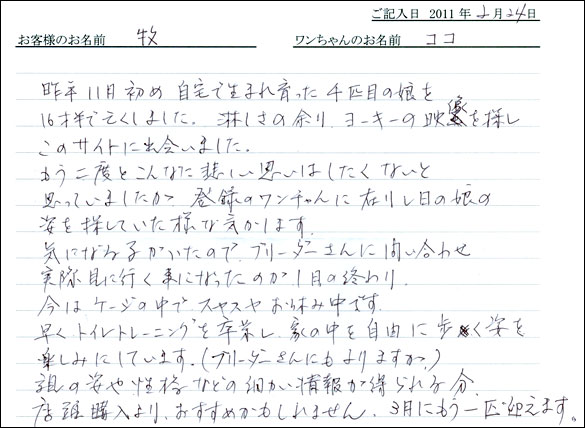 ご記入日 2011年2月24日
お客様のお名前 牧 ワンちゃんのお名前 ココ
昨年11月初め 自宅で生まれ育った4匹目の娘を
16才半で亡くしました。淋しさの余り、ヨーキーの映像を探し
このサイトに出会いました。
もう二度とこんなに悲しい思いはしたくないと
思っていましたが 登録のワンチャンに在りし日の娘の
姿を探していた様な気がします。
気になる子がいたので、ブリーダーさんに問い合わせ
実際見に行く事になったのが1月の終わり、
今はケージの中でスヤスヤお休み中です。
早くトイレトレーニングを卒業し、家の中を自由に歩く姿を
楽しみにしています。(ブリーダーさんにもよりますが、)
親の姿や性格などの細かい情報が得られる分、
店頭購入より、おすすめかもしれません、3月にもう一匹迎えます。